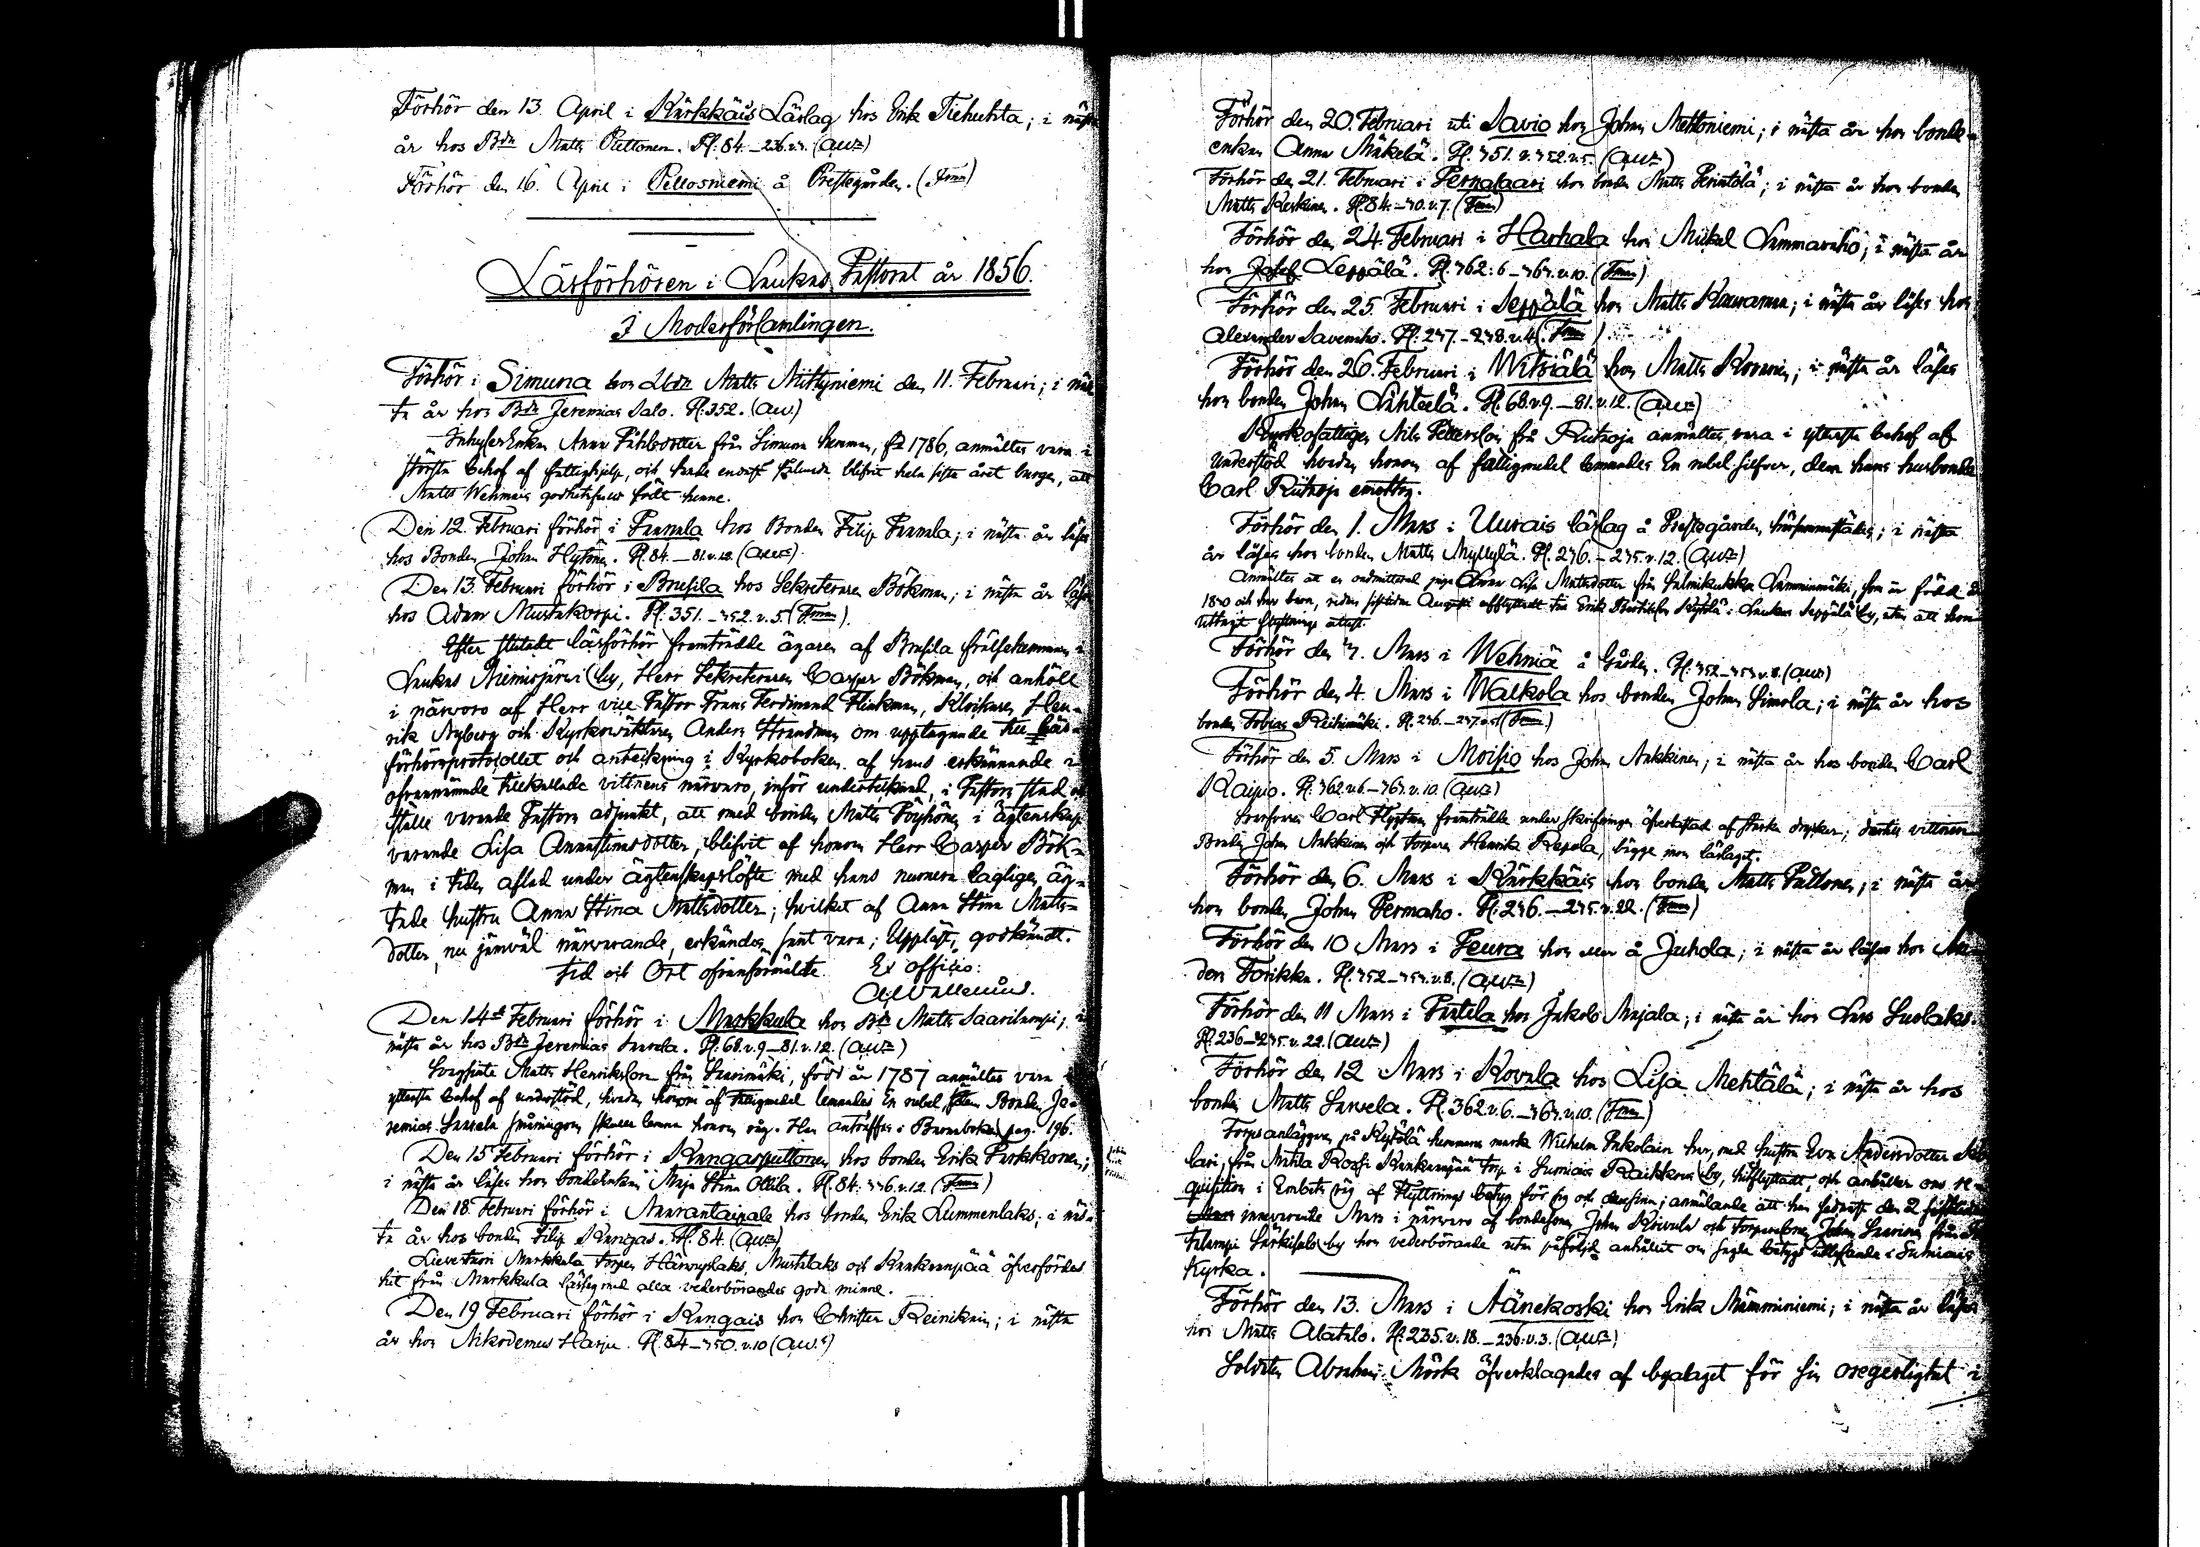 Förhör den 13 April i Kärkkäis Läslag hos Erik Tiehuhta; i nästa
år hos Bdn Matts Puttonen. Pl. 84.–236.v.4. (AWn)
Förhör den 16. April i Pellosniemi å Prestegården. (Fmn)
Läsförhören i Laukas Pastorat år 1856.
I Moderförsamlingen.
Förhör i Simuna hos Bdn Matts Mittyniemi den 11. Februari; i näs-
ta år hos Bdn Jeremias Salo. Pl. 352. (AW)
Inhyses Enkan Anna Påhlsdotter från Simuna hemman, född 1786, anmältes vara i
största behof af fattighjelp, och hade endast sålunda blifvit hela sista året burgen, att
Matts Wehmais godhetsfullt födt henne.
Den 12. Februari förhör i Funnala hos Bonden Filip Funnala; i nästa år läses
hos Bonden Johan Hytönen. Pl. 84.–81.v.12. (AWn)
Den 13. Februari förhör i Brusila hos Sekreteraren Bökman; i nästa år läses
hos Adam Mustakorpi. Pl. 351.–352.v.5. (Fmn)
Efter slutadt läsförhör framträdde ägaren af Brusila frälsehemman i
Laukas Niemisjärvi by, Herr Sekreteraren Casper Bökman, och anhöll
i närvaro af Herr vice Pastor Frans Ferdinand Flinkman, Klockaren Hen-
rik Nyberg och Kyrkowäktaren Anders Strandman om upptagande till Läs-
förhörsprotocollet och anteckning i Kyrkoboken af hans erkännande i
ofvannämnde tillkallade vittnens närvaro, inför undertecknad, i Pastors stad och
ställe varande Pastors adjunkt, att med bonden Matts Pöyhönen i ägtenskap
varande Lisa Annastinasdotter, blifvit af honom Herr Casper Bök-
man i tiden aflad under ägtenskapslöfte med hans numera lagligen äg-
tade hustru Anna Stina Mattsdotter; hvilket af Anna Stina Matts-
dotter, nu jemväl närvarande, erkändes sant vara; Uppläst, godkändt.
Tid och Ort ofvanförmälte. Ex officio:
A. Wallenius.
Den 14de Februari förhör i Markkula hos Bdn Matts Saarilampi; i
nästa år hos Bdn Jeremias Laurila. Pl. 68.v.9.–81.v.12. (AWn)
Matts Henriksson från Saarimäki, född år 1787 anmältes vara i
yttersta behof af understöd, hvadan honom af fattigmedel lemnades en rubel silfver. Bonden Je-
remias skulle lemna honom råg. Han anträffas i Barnaboken pag. 196.
Den 15 Februari förhör i Kangasputtonen hos bonden Erik Parkkonen;
i nästa år läses hos bondeEnkan Maja Stina Ollila. Pl. 84.–336.v.12. (Fmn)
Den 18. Februari förhör i Saarantaipale hos bonden Erik Lummenlaks; i näs-
ta år hos bonden Filip Kangas. Pl. 84. (AWn)
Lievestuori Markkula torpen Härmylaks, Mustilaks och Kankaanpää öfverfördes
hit från Markkula läslag med alla vederbörandes goda minne.
Den 19 Februari förhör i Kangais hos Christer Reinikain; i nästa
år hos Nikodemus Harju. Pl. 84–350.v.10 (AWn)
Förhör den 20. Februari uti Savio hos Johan Mettoniemi; i nästa år hos bonde-
enkan Anna Mäkelä. Pl. 351.v.352.v.5. (AWn)
Förhör den 21. Februari i Pernasaari hos bonden Matts Perintölä; i nästa år hos bonden
Matts Keskinen. Pl. 84.–40.v.7. (Fmn)
Förhör den 24. Februari i Harhala hos Mickel Lammasaho; i nästa år
hos Josef Leppälä. Pl. 362:6–364.v.10. (Fmn)
Förhör den 25. Februari i Seppälä hos Matts Kauranen; i nästa år läses hos
Alexander Savenaho. Pl. 247.–248.v.4. (Fmn)
Förhör den 26. Februari i Witsiälä hos Matts Kovanen; i nästa år läses
hos bonden Johan Lähteelä. Pl. 68.v.9.–81.v.12. (AWn)
Kyrkofattigen Nils Pettersson från Rutsoja anmältes vara i yttersta behof af
understöd hvadan honom af fattigmedel lemnades En rubel silfver, dem hans husbonde
Carl Rutsoja emottog.
Förhör den 1. Mars i Uurais läslag å Prestegården; i nästa
år läses hos bonden Matts Myllylä. Pl. 236.–235.v.12. (AWn)
Anmältes att en oadmitterad piga Anna Lisa Mattsdotter från Lamminmäki, som är född
1840 och har barn, redan sistlidne Augusti afflyttadt till Erik Kytölä i Laukas Seppälä by, utan att hon
uttagit flyttnings attest.
Förhör den 3. Mars i Wehniä å Gården. Pl. 352–354.v.8. (AWn)
Förhör den 4. Mars i Walkola hos bonden Johan Simola; i nästa år hos
bonden Tobias Riihimäki. Pl. 236.–237.v.5 (Fmn)
Förhör den 5. Mars i Moisio hos Johan Nukkinen; i nästa år hos bonden Carl
Kaipio. Pl. 362.v.6.–364.v.10. (AWn)
Carl framträdde under skriftningen öfverlastad af starka drycker; dertill vittnen
Bonden Johan Nukkinen och torparen Henrik Repola, bägge inom läslaget.
Förhör den 6. Mars i Kärkkäis hos bonden Matts Puttonen; i nästa år
hos bonden Johan Permaho. Pl. 236.–235.v.22. (Fmn)
Förhör den 10 Mars i Peura hos å Juhola; i nästa år läses hos
den Torikka. Pl. 352–354.v.8. (AWn)
Förhör den 11 Mars i Pentela hos Jakob Majala; i nästa år hos Lars Suolaks.
Pl. 236–235.v.22. (AWn)
Förhör den 12 Mars i Kovala hos Lisa Mehtälä; i nästa år hos
bonden Matts Laurela. Pl. 362.v.6.–364.v.10. (Fmn)
Torpsanläggaren på Kytölä hemmans mark Wilhelm Pakolain har, med hustru Eva Andersdotter
från Kankaanpää torp i Sumiais Raikkaus by, hitflyttadt, och anhåller om re-
quisition i Embets väg af flyttnings betyg för sig och densamma; anmälande att han den 2 sistlidne
innevarande Mars i närvaro af bondesonen Johan Koivula och torparesonen Johan Laurinen från
by hos vederbörande utan påföljd anhållit om sagde betygs utlefvande i Sumiais
Kyrka.
Förhör den 13. Mars i Äänekoski hos Erik Mämminiemi; i nästa år läses
hos Matts Alatalo. Pl. 235.v.18.–236.v.3. (AWn)
Soldaten Abraham Mörk öfverklagades af byalaget för sin oregerlighet i